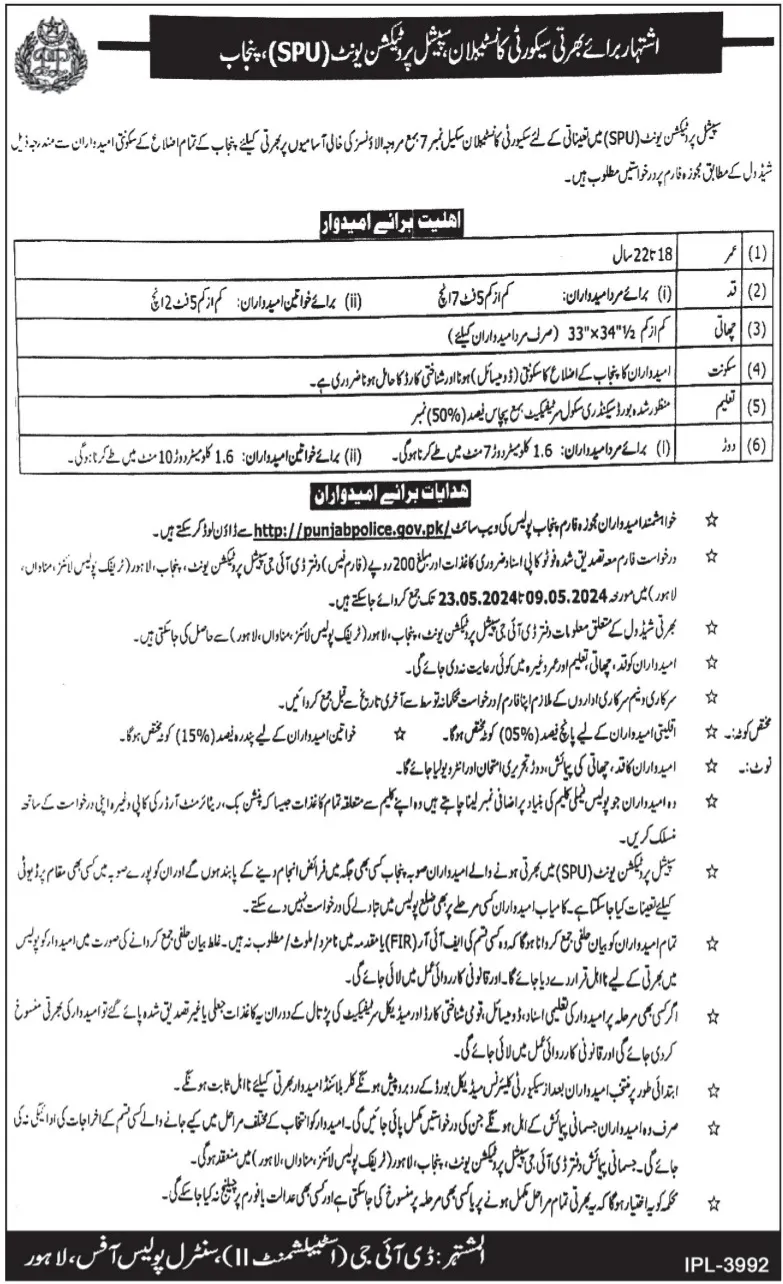 اشتہار برائے بھرتی سیکورٹی کانسٹیبلان، سپیشل پروٹیکشن یونٹ (SPU)، پنجاب
سپیشل پروٹیکشن یونٹ (SPU) میں تعیناتی کے لئے سیکورٹی کانسٹیبلان سکیل نمبر 7 بمع مروجہ الاؤنسز کی خالی آسامیوں پر بھرتی کیلئے پنجاب کے تمام اضلاع کے سکونتی امیدواران سے مندرجہ ذیل
شیڈول کے مطابق مجوزہ فارم پر درخواستیں مطلوب ہیں۔
اہلیت برائے امیدوار
(1) عمر 18 تا 22 سال
(2) قد (i) برائے مرد امیدواران: کم از کم 5 فٹ 7 انچ (ii) برائے خواتین امیدواران: کم از کم 5 فٹ 2 انچ
(3) چھاتی کم از کم 33"×34½" (صرف مرد امیدواران کیلئے)
(4) سکونت امیدواران کا پنجاب کے اضلاع کا سکونتی (ڈومیسائل) ہونا اور شناختی کارڈ کا حامل ہونا ضروری ہے۔
(5) تعلیم منظور شدہ بورڈ سیکنڈری سکول سرٹیفکیٹ بمع پچاس فیصد (50%) نمبر
(6) دوڑ (i) برائے مرد امیدواران: 1.6 کلومیٹر دوڑ 7 منٹ میں طے کرنا ہوگی۔ (ii) برائے خواتین امیدواران: 1.6 کلومیٹر دوڑ 10 منٹ میں طے کرنا ہوگی۔
ہدایات برائے امیدواران
☆ خواہشمند امیدواران مجوزہ فارم پنجاب پولیس کی ویب سائٹ http://punjabpolice.gov.pk/ سے ڈاؤن لوڈ کر سکتے ہیں۔
☆ درخواست فارم معہ تصدیق شدہ فوٹو کاپی اسناد ضروری کاغذات اور مبلغ 200 روپے (فارم فیس) دفتر ڈی آئی جی سپیشل پروٹیکشن یونٹ، پنجاب، لاہور (ٹریفک پولیس لائنز، مناواں،
لاہور) میں مورخہ 09.05.2024 تا 23.05.2024 تک جمع کروائے جا سکتے ہیں۔
☆ بھرتی شیڈول کے متعلق معلومات دفتر ڈی آئی جی سپیشل پروٹیکشن یونٹ، پنجاب، لاہور (ٹریفک پولیس لائنز، مناواں، لاہور) سے حاصل کی جا سکتی ہیں۔
☆ امیدواران کو قد، چھاتی، تعلیم اور عمر وغیرہ میں کوئی رعایت نہ دی جائے گی۔
☆ سرکاری و نیم سرکاری اداروں کے ملازم اپنا فارم/درخواست محکمانہ توسط سے آخری تاریخ سے قبل جمع کروائیں۔
مختص کوٹہ:۔ ☆ اقلیتی امیدواران کے لیے پانچ فیصد (05%) کوٹہ مختص ہوگا۔ ☆ خواتین امیدواران کے لیے پندرہ فیصد (15%) کوٹہ مختص ہوگا۔
نوٹ:۔ ☆ امیدواران کا قد، چھاتی کی پیمائش، دوڑ، تحریری امتحان اور انٹرویو لیا جائے گا۔
☆ وہ امیدواران جو پولیس فیملی کلیم کی بنیاد پر اضافی نمبر لینا چاہتے ہیں وہ اپنے کلیم سے متعلقہ تمام کاغذات جیسا کہ پنشن بک، ریٹائرمنٹ آرڈر کی کاپی وغیرہ اپنی درخواست کے ساتھ
منسلک کریں۔
☆ سپیشل پروٹیکشن یونٹ (SPU) میں بھرتی ہونے والے امیدواران صوبہ پنجاب کسی بھی جگہ میں فرائض انجام دینے کے پابند ہوں گے اور ان کو پورے صوبہ میں کسی بھی مقام پر ڈیوٹی
کیلئے تعینات کیا جا سکتا ہے۔ کامیاب امیدواران کسی مرحلے پر بھی ضلع پولیس میں تبادلے کی درخواست نہیں دے سکتے۔
☆ تمام امیدواران کو بیان حلفی جمع کروانا ہوگا کہ وہ کسی قسم کی ایف آئی آر (FIR) یا مقدمہ میں نامزد/ملوث/مطلوب نہ ہیں۔ غلط بیان حلفی جمع کروانے کی صورت میں امیدوار کو پولیس
میں بھرتی کے لیے نااہل قرار دے دیا جائے گا۔ اور قانونی کارروائی عمل میں لائی جائے گی۔
☆ اگر کسی بھی مرحلہ پر امیدوار کی تعلیمی اسناد، ڈومیسائل، قومی شناختی کارڈ اور میڈیکل سرٹیفکیٹ کی پڑتال کے دوران یہ کاغذات جعلی یا غیر تصدیق شدہ پائے گئے تو امیدوار کی بھرتی منسوخ
کر دی جائے گی اور قانونی کارروائی عمل میں لائی جائے گی۔
☆ ابتدائی طور پر منتخب امیدواران بعد از سیکورٹی کلیئرنس میڈیکل بورڈ کے روبرو پیش ہونگے کلر بلائنڈ امیدوار بھرتی کیلئے نااہل ثابت ہونگے۔
☆ صرف وہ امیدواران جسمانی پیمائش کے اہل ہونگے جن کی درخواستیں مکمل پائی جائیں گی۔ امیدوار کو انتخاب کے مختلف مراحل میں کیے جانے والے کسی قسم کے اخراجات کی ادائیگی نہ کی
جائے گی۔ جسمانی پیمائش دفتر ڈی آئی جی سپیشل پروٹیکشن یونٹ، پنجاب، لاہور (ٹریفک پولیس لائنز، مناواں، لاہور) میں منعقد ہوگی۔
☆ محکمہ کو یہ اختیار ہوگا کہ یہ بھرتی تمام مراحل مکمل ہونے پر یا کسی بھی مرحلہ پر منسوخ کی جا سکتی ہے اور کسی بھی عدالت یا فورم پر چیلنج نہ کیا جا سکے گی۔
المشتہر: ڈی آئی جی (اسٹیبلشمنٹ II)، سنٹرل پولیس آفس، لاہور
IPL-3992